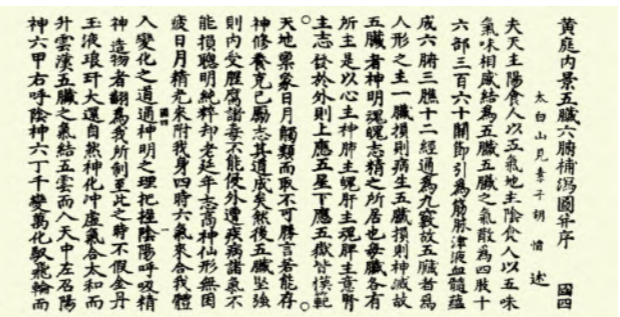 黄庭内景五臟六腑補瀉圖并序 國四
太白山見素子胡愔述
夫天主陽食人以五氣地主陰食人以五味
氣味相感結為五臟五臟之氣散為四肢十
六部三百六十關節引為筋脉津液血髓蘊
成六腑三膲十二經通為九竅故五臟者為
人形之主一臟損則病生五臟損則神滅故
五臟者神明魂魄志精之所居也每臟各有
所主是以心主神肺主魄肝主魂脾主意腎
主志發於外則上應五星下應五嶽皆模範
天地禀象日月觸類而取不可勝言若能存
神修養克己勵志其道成矣然後五臟堅強
則内受腥腐諸毒不能侵外遭疾病諸氣不
能損聰明純粹却老延年志高神仙形無困
疲日月精光來附我身四時六氣來合我體
入變化之道通神明之理把握陰陽呼吸精
神造物者翻為我所制至此之時不假金丹
玉液琅玕大還自然神化冲虛氣合太和而
升雲漢五臟之氣結五雲而入天中左召陽
神六甲右呼陰神六丁千變萬化馭飛輪而